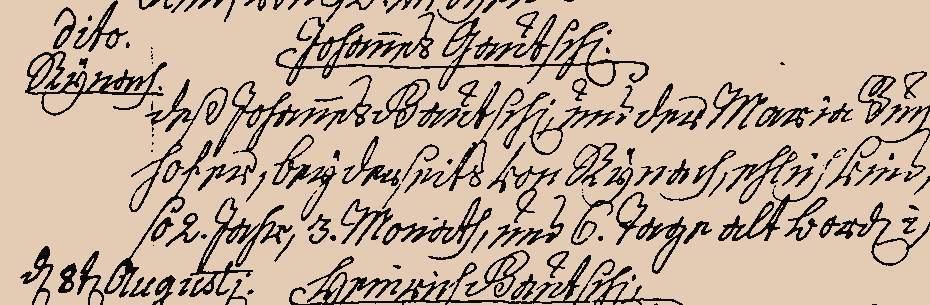 dito. Johannes Gautschi.
Rÿnach.
deß Johannes Gautschi, und der Maria
hofer, beÿderseits von Rÿnach, ehlich kind,
so 2. Jahr, 3. Monath, und 6. Tage alt word
d 8t Augusti. Heinrich Gautschi,